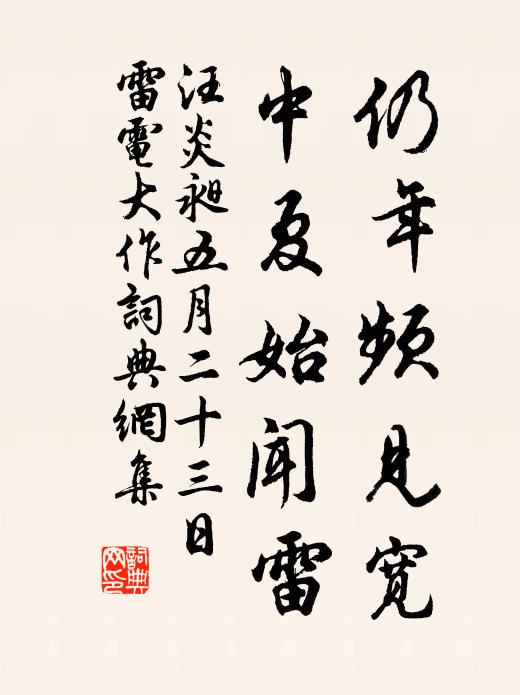 仍年頻見寬
中夏始聞雷
汪炎昶五月二十三日
雷電大作詞典網集
詞典网印